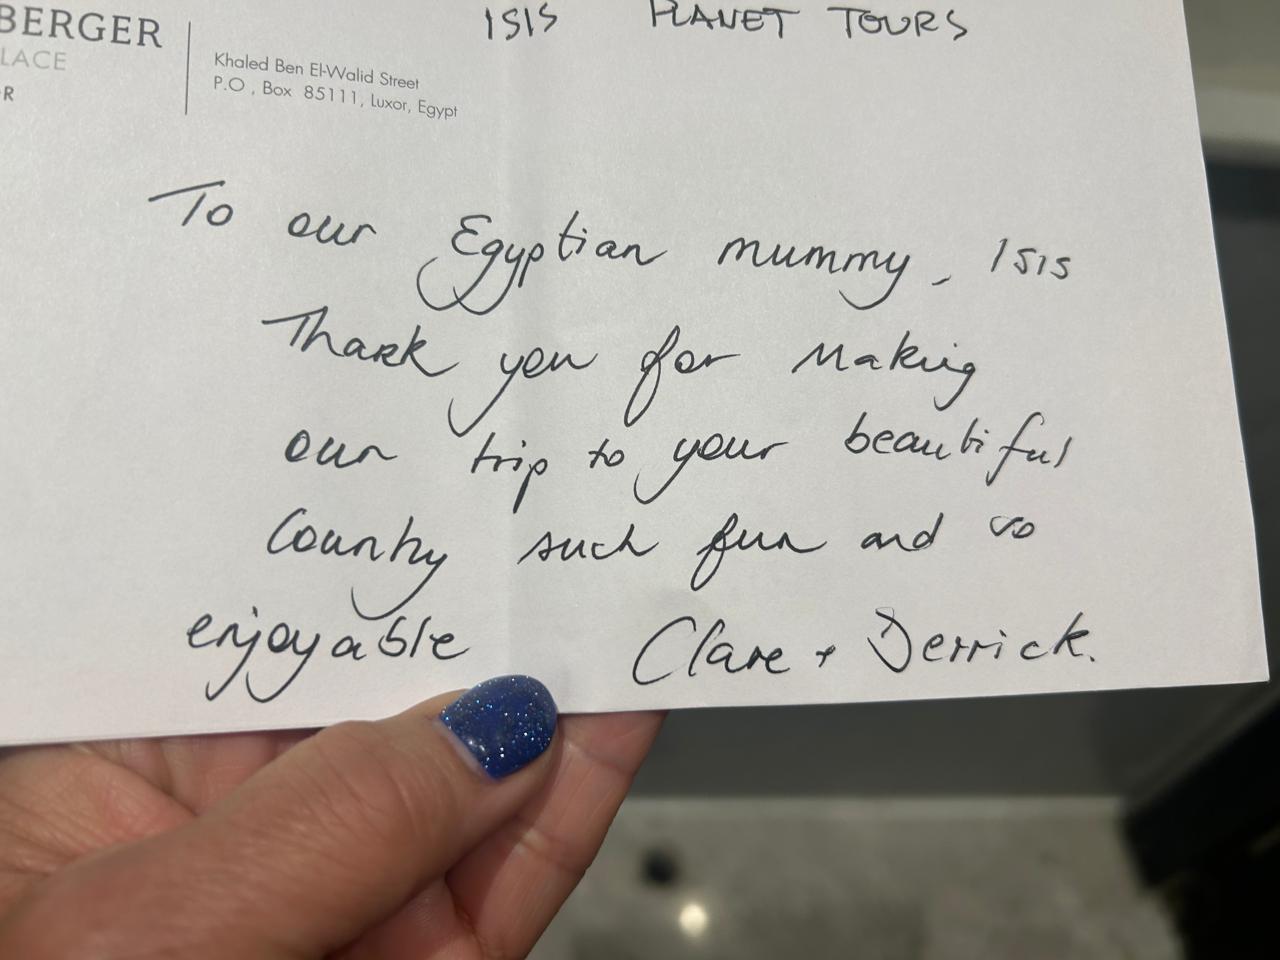 BERGER
LACE
R
Khaled Ben El-Walid Street
P.O , Box 85111, Luxor, Egypt
ISIS PLANET TOURS
To our Egyptian mummy, Isis
Thank you for Making
our trip to your beautiful
Country such fun and so
enjoyable Clare + Derrick.